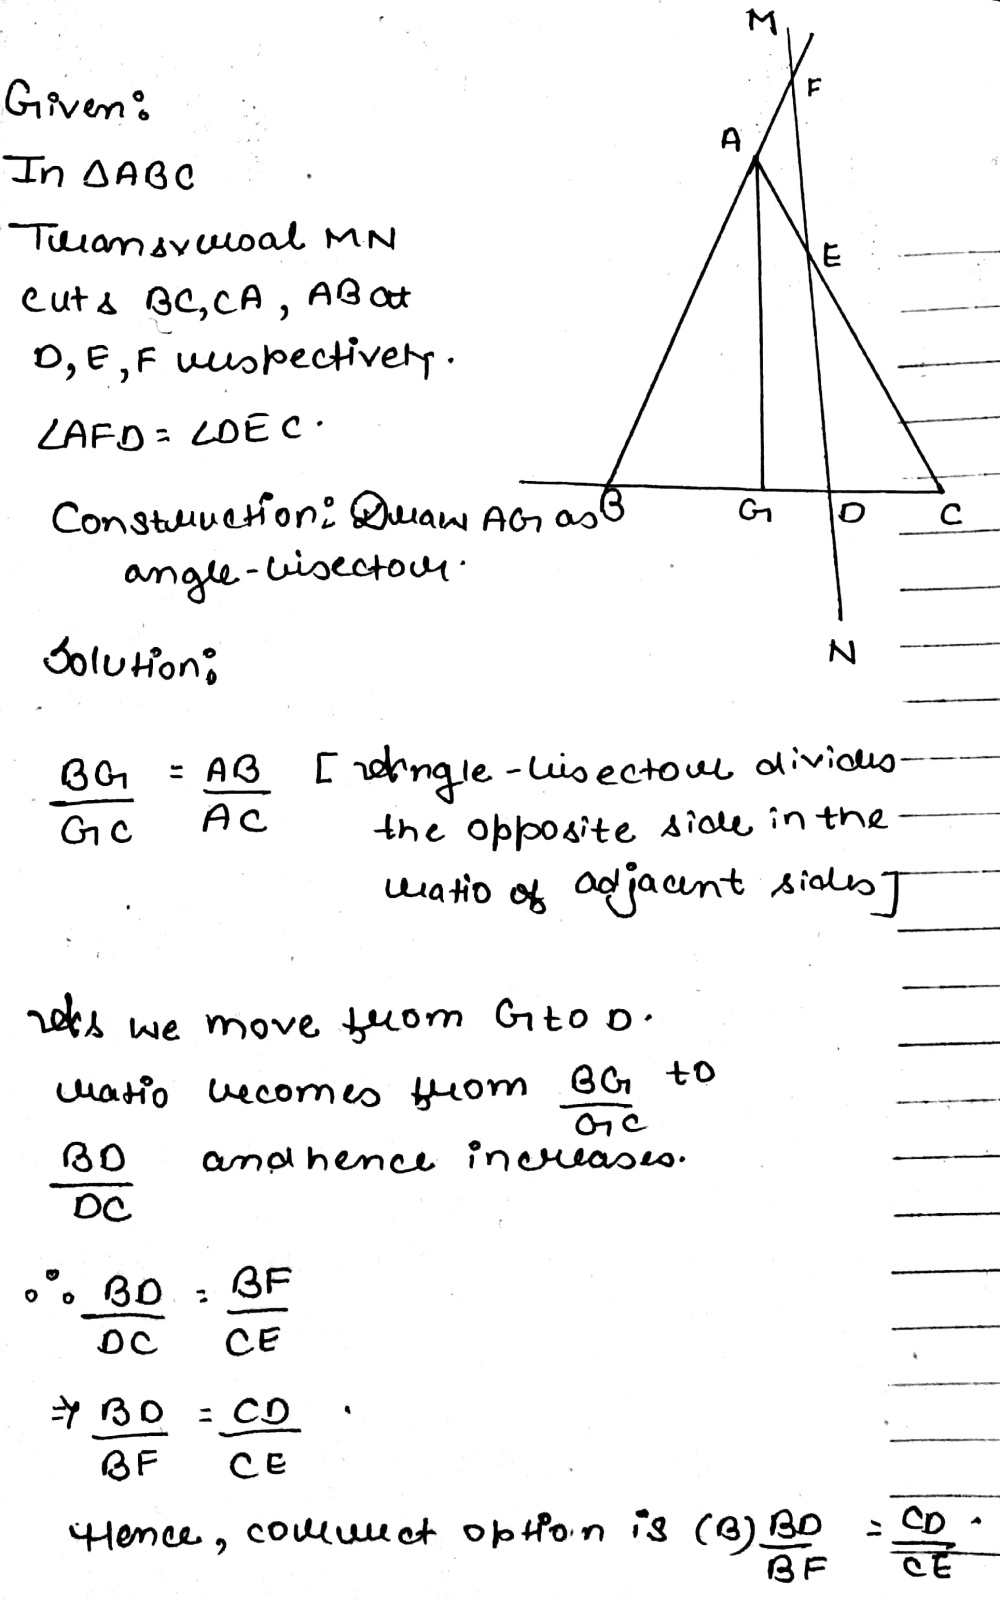 M
F
Given:
A
In ΔABC
Transversal MN
E
cuts BC, CA, AB at
D, E, F respectively.
∠AFD = ∠DEC.
B G D C
Construction: Draw AG as
angle-bisector.
N
Solution:
BG/GC = AB/AC [Angle-bisector divides
the opposite side in the
ratio of adjacent sides]
As we move from G to D.
ratio becomes from BG/GC to
BD/DC and hence increases.
∴ BD/DC = BF/CE
⇒ BD/BF = CD/CE.
Hence, correct option is (B) BD/BF = CD/CE.